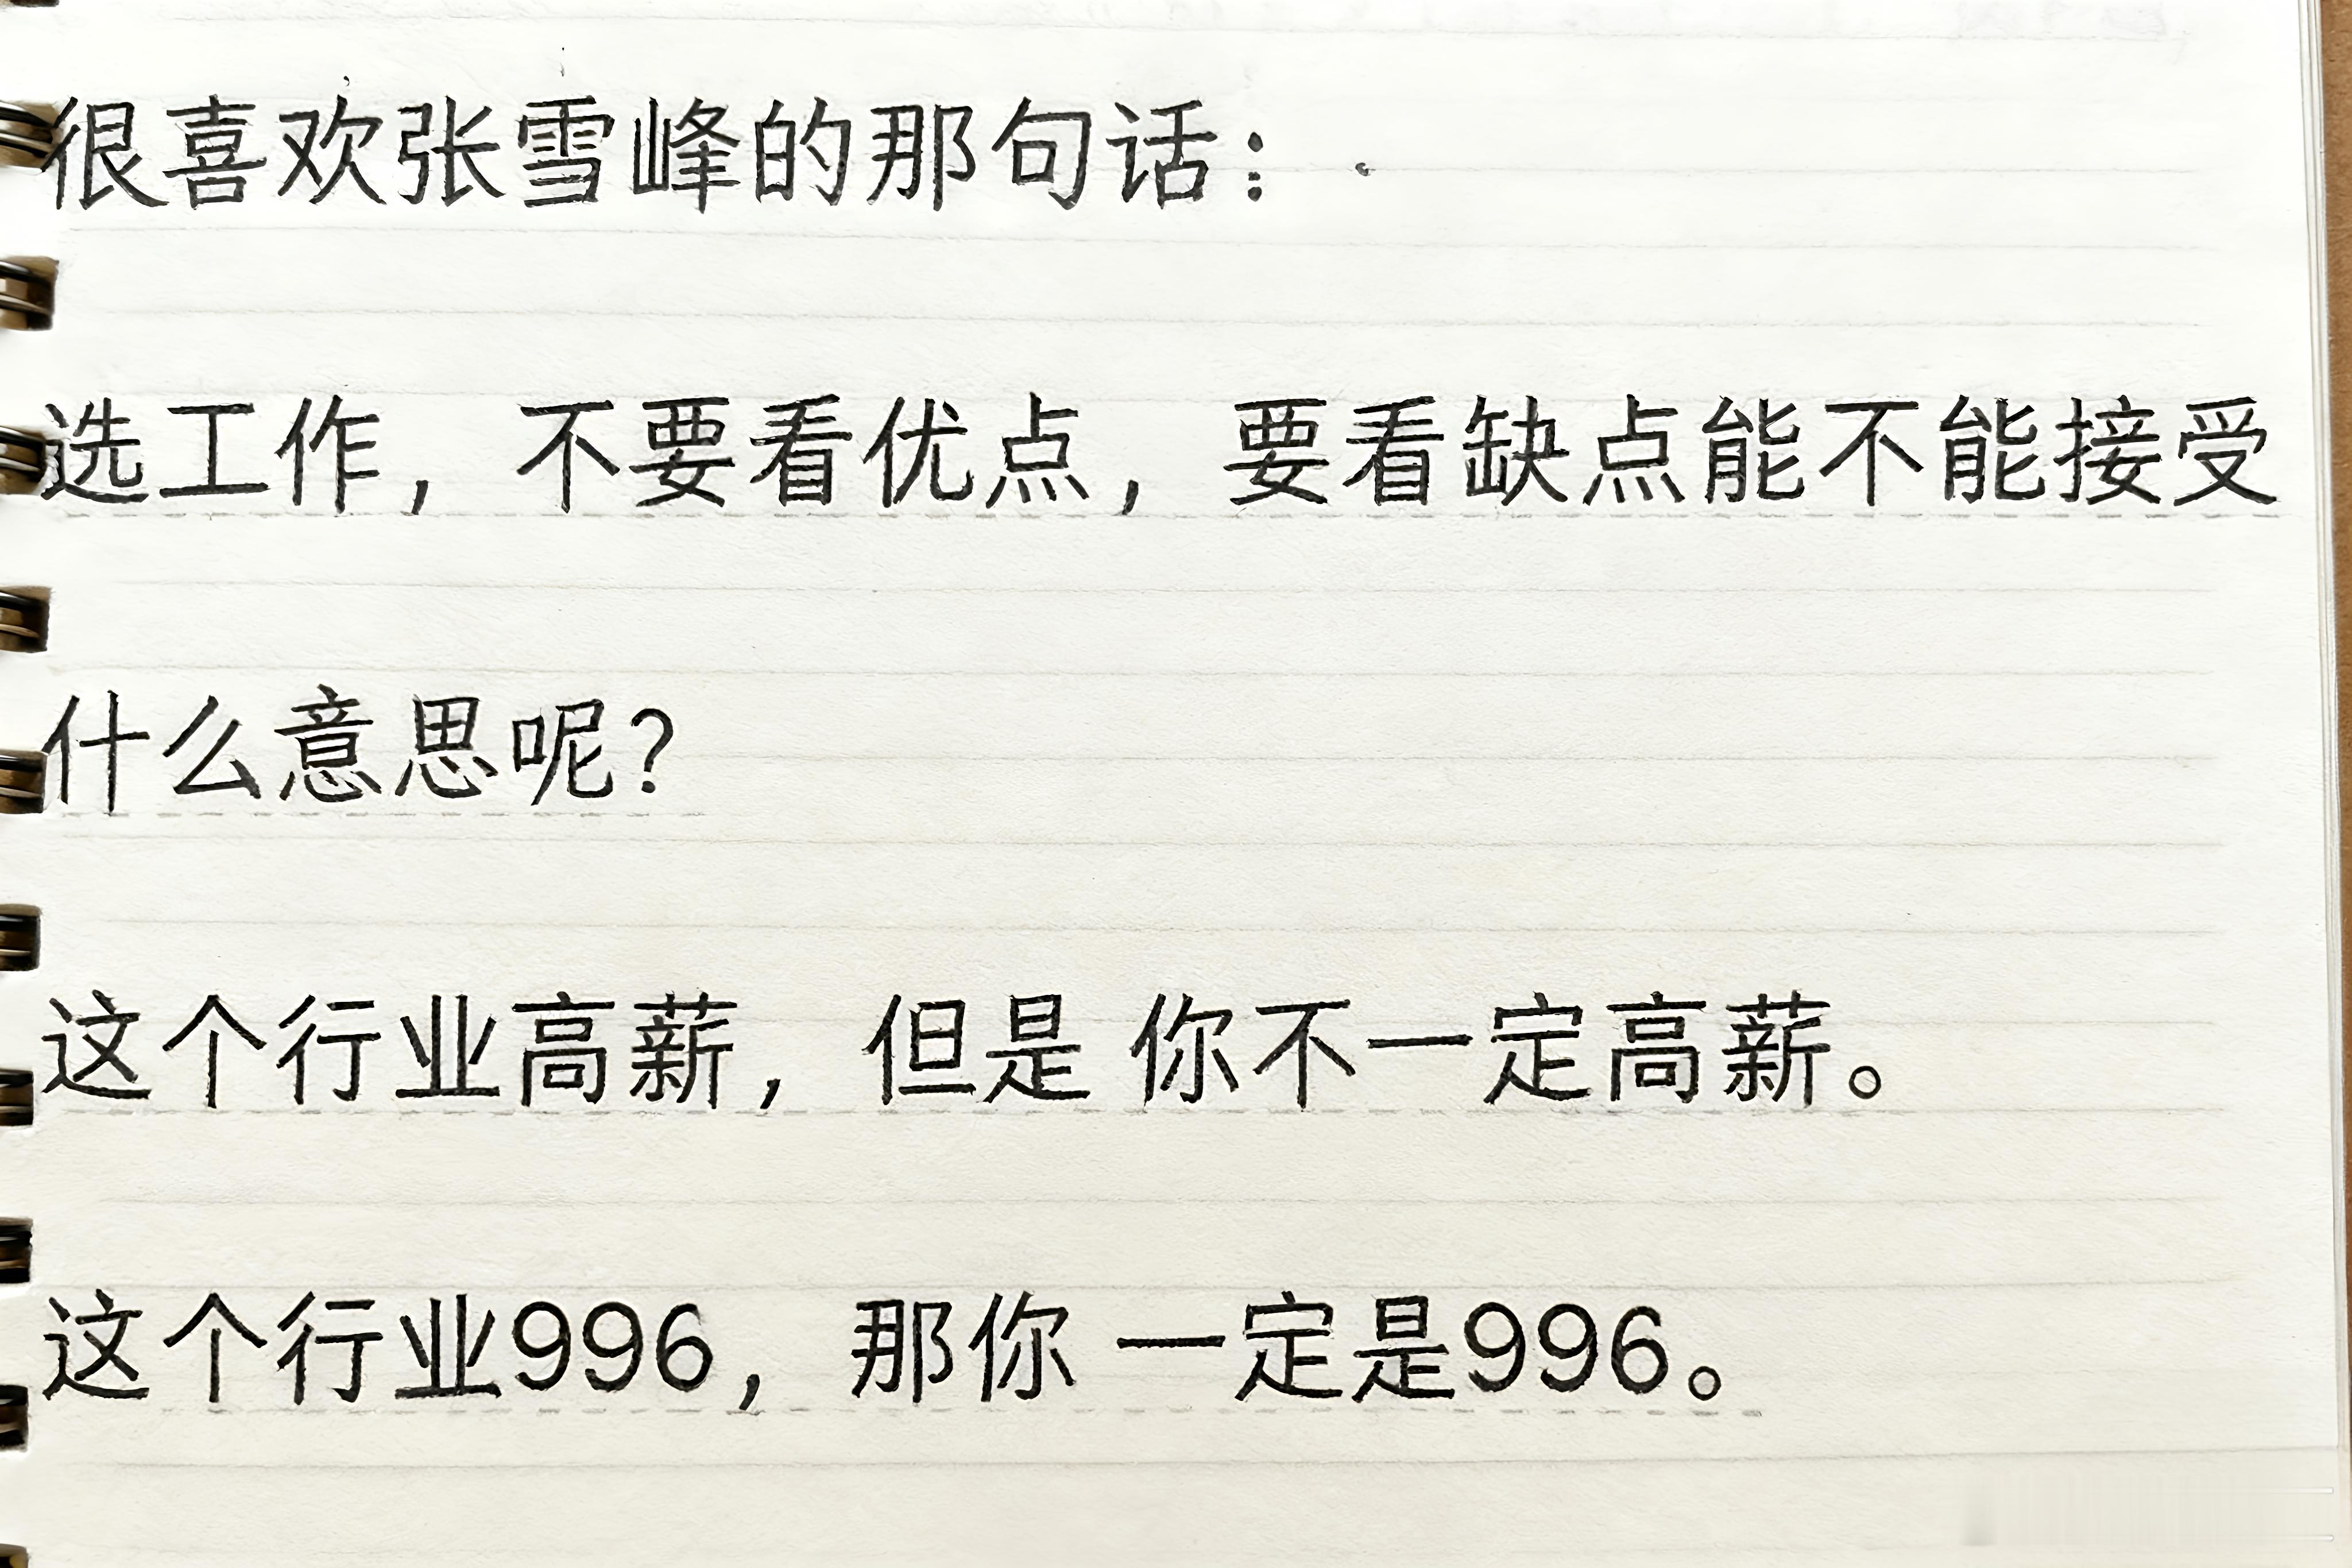 很喜欢张雪峰的那句话：
选工作，不要看优点，要看缺点能不能接受
什么意思呢？
这个行业高薪，但是 你不一定高薪。
这个行业996，那你 一定是996。